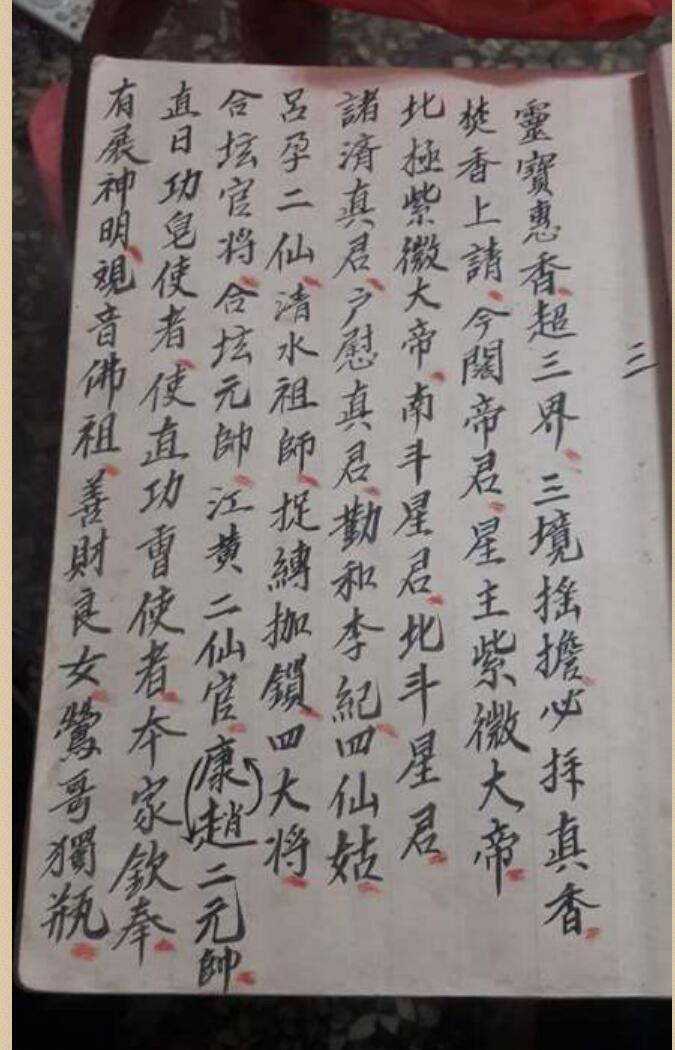 三
靈寶惠香超三界三境搖擔必採真香
焚香上請今闕帝君星主紫微大帝
北極紫微大帝南斗星君北斗星君
諸濟真君户慰真君勤和李紀四仙姑
呂孕二仙清水祖師捉縛枷鎖四大将
合坛官将合坛元帥江黄二仙官康趙二元帥
直日功皂使者使直功曹使者本家欽奉
有展神明覌音佛祖善財良女鶯哥獨瓶